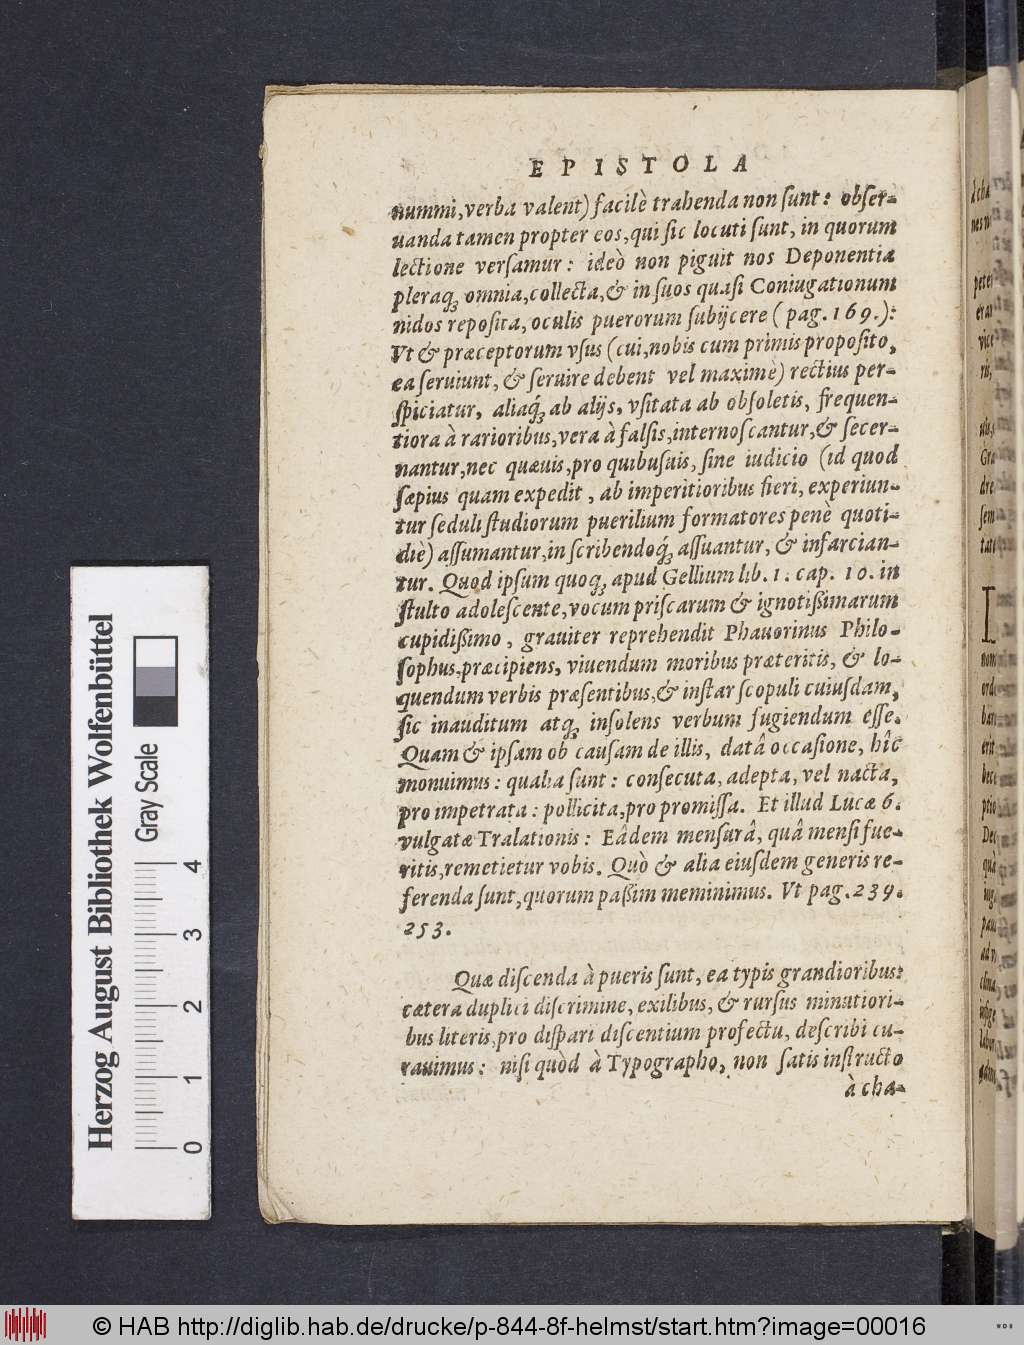 EPISTOLA
nummi, verba valent) facilè trahenda non sunt: obser-
uanda tamen propter eos, qui sic locuti sunt, in quorum
lectione versamur: ideò non piguit nos Deponentia
pleraq́; omnia, collecta, & in suos quasi Coniugationum
nidos reposita, oculis puerorum subijcere (pag. 169.):
Vt & præceptorum vsus (cui, nobis cum primis proposito,
ea seruiunt, & seruire debent vel maximè) rectius per-
spiciatur, aliaq́; ab alijs, vsitata ab obsoletis, frequen-
tiora à rarioribus, vera à falsis, internoscantur, & secer-
nantur, nec quæuis, pro quibusuis, sine iudicio (id quod
sæpius quam expedit, ab imperitioribus fieri, experiun-
tur seduli studiorum puerilium formatores penè quoti-
diè) assumantur, in scribendoq́; assuantur, & infarcian-
tur. Quod ipsum quoq; apud Gellium lib. 1. cap. 10. in
stulto adolescente, vocum priscarum & ignotißimarum
cupidißimo, grauiter reprehendit Phauorinus Philo-
sophus, præcipiens, viuendum moribus præteritis, & lo-
quendum verbis præsentibus, & instar scopuli cuiusdam,
sic inauditum atq; insolens verbum fugiendum esse.
Quam & ipsam ob causam de illis, datâ occasione, hîc
monuimus: qualia sunt: consecuta, adepta, vel nacta,
pro impetrata: pollicita, pro promissa. Et illud Lucæ 6.
vulgatæ Tralationis: Eâdem mensurâ, quâ mensi fue-
ritis, remetietur vobis. Quò & alia eiusdem generis re-
ferenda sunt, quorum paßim meminimus. Vt pag. 239.
253.
Quæ discenda à pueris sunt, ea typis grandioribus:
cætera duplici discrimine, exilibus, & rursus minutiori-
bus literis, pro dispari discentium profectu, describi cu-
rauimus: nisi quòd à Typographo, non satis instructo
à cha-
Herzog August Bibliothek Wolfenbüttel
Gray Scale
0 1 2 3 4
© HAB http://diglib.hab.de/drucke/p-844-8f-helmst/start.htm?image=00016